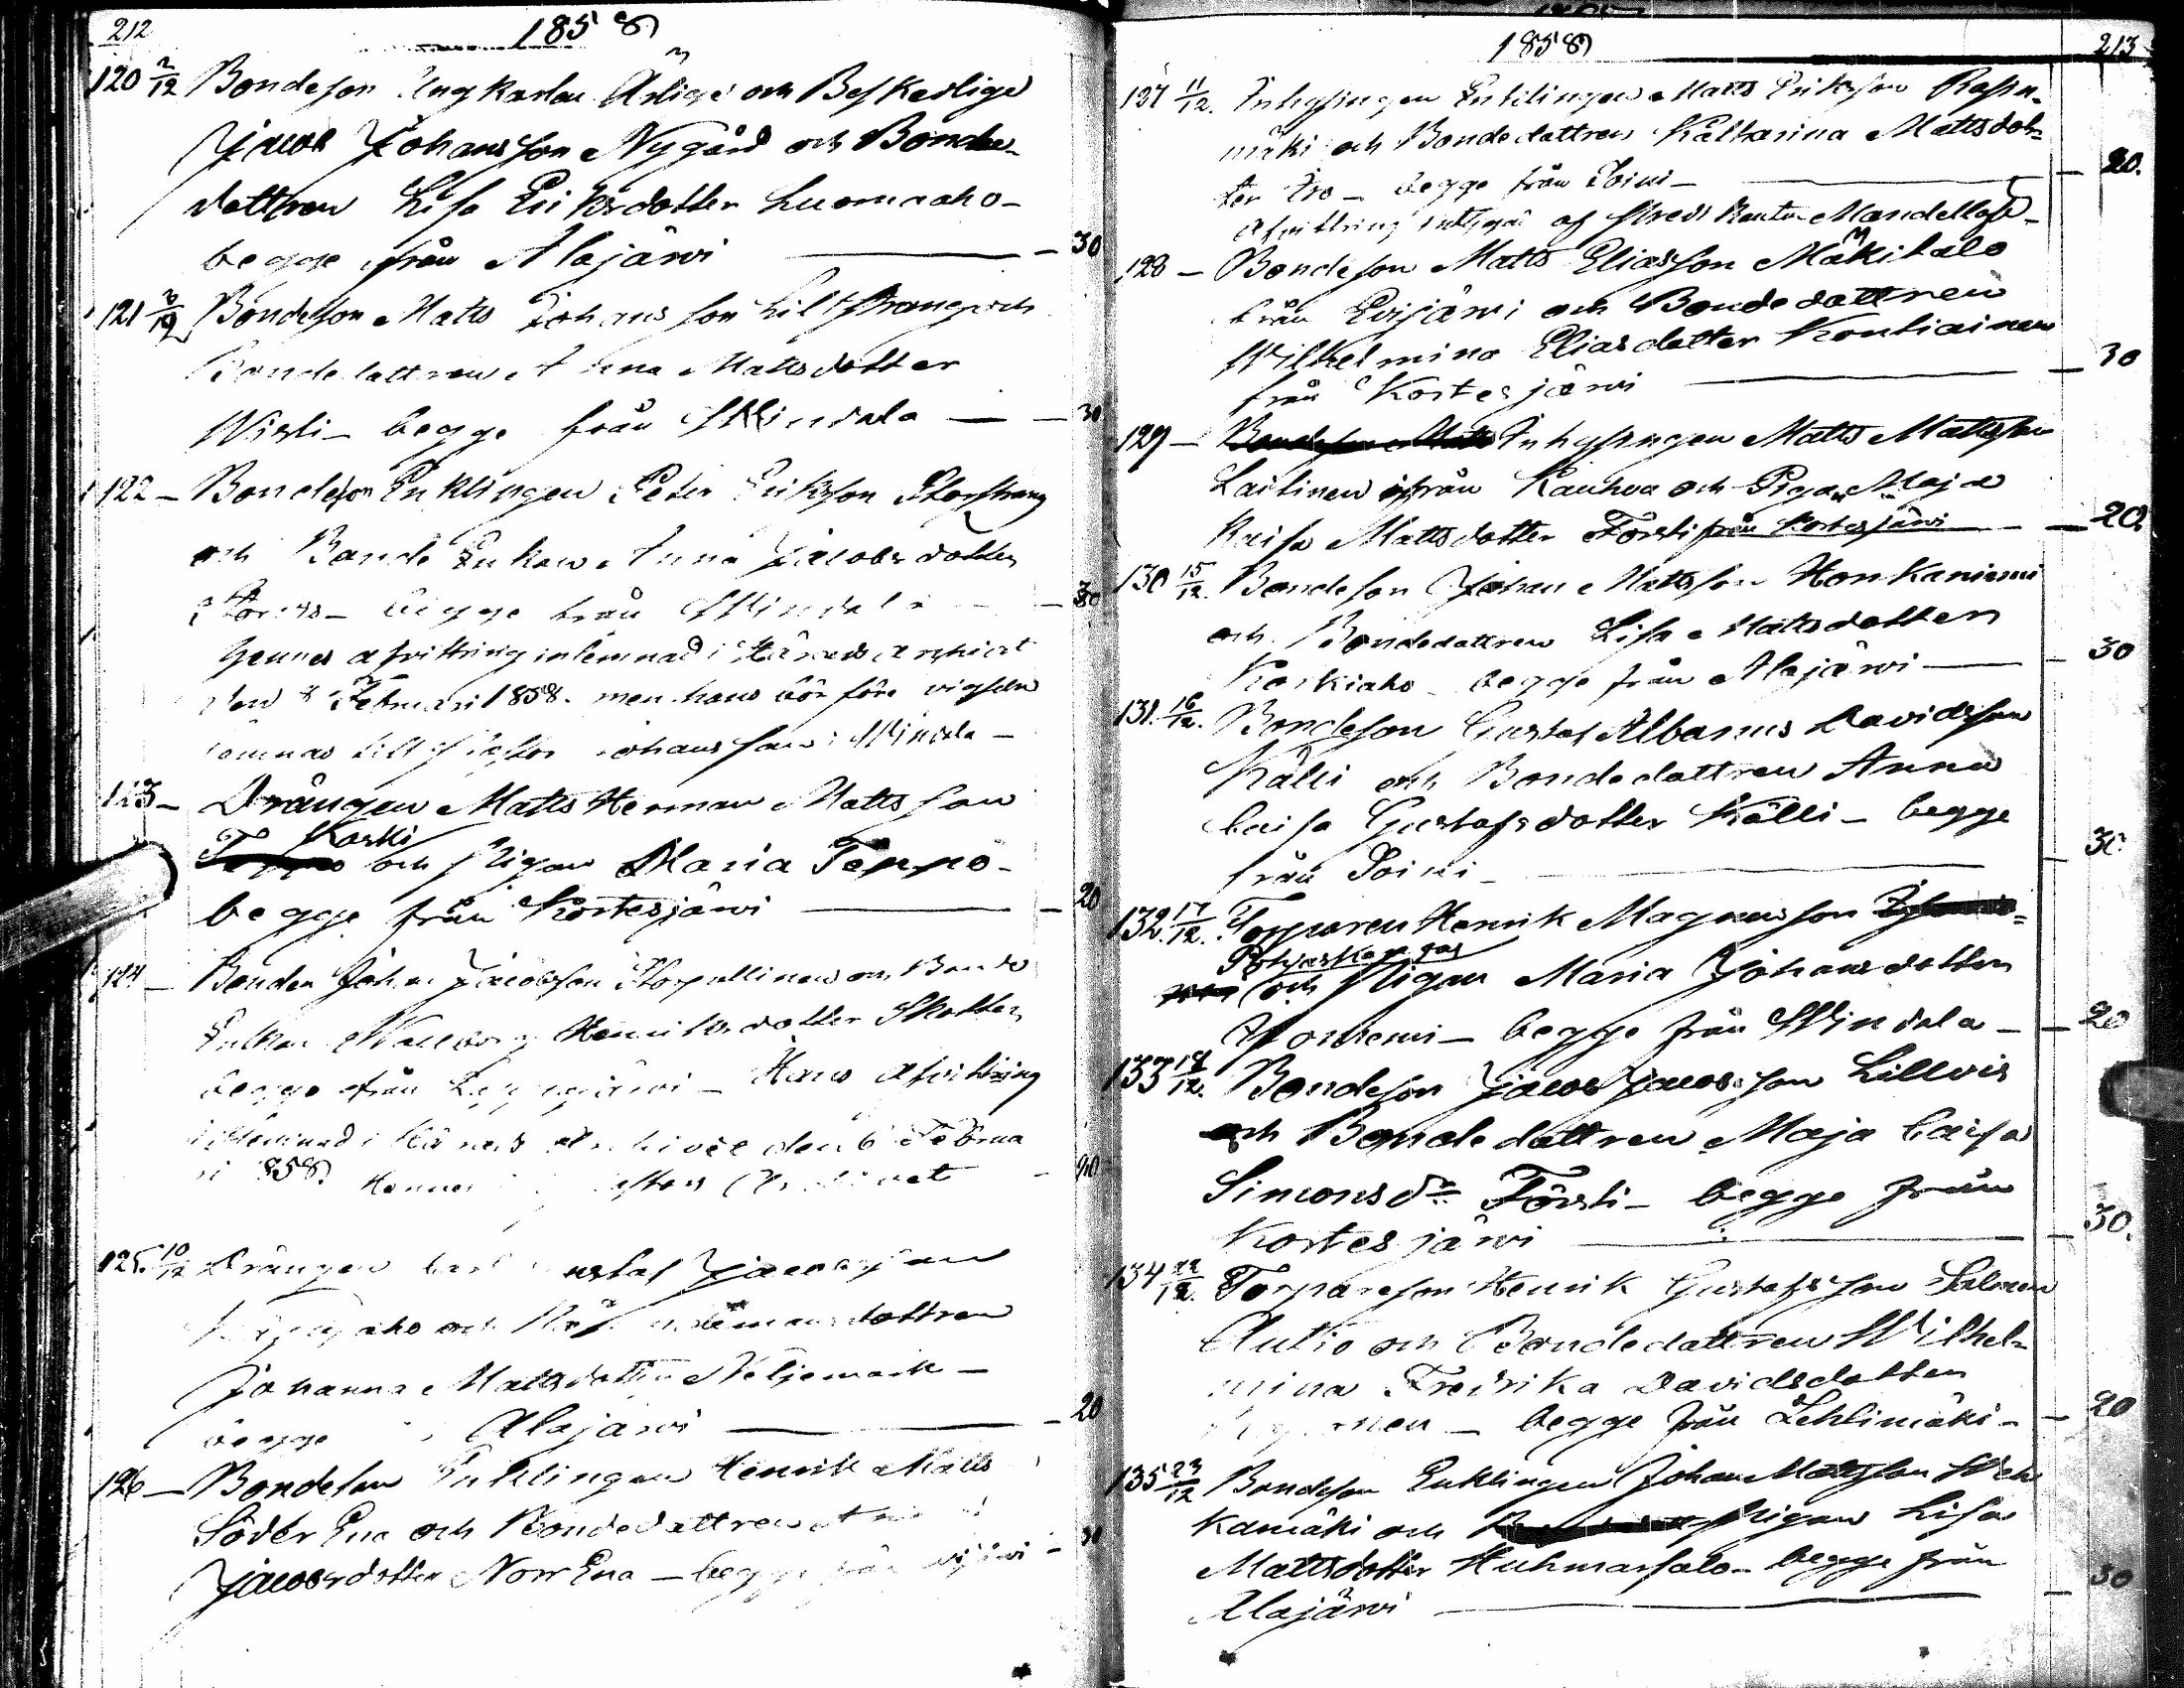 212
1858
120 2/12 Bondeson Ungkarlen Ärlige och Beskedlige
Jacob Johansson Nygård och Bonde-
dottren Lisa Eriksdotter Luomaaho-
begge från Alajärvi — 30
121 3/12 Bondeson Matts Johansson Lillstrang och
Bondedattren Anna Mattsdotter
Wisti - begge från Windala — 30
122 - Bondeson Enklingen Peter Eriksson Storstrang
och Bonde Enkan Anna Jacobsdotter
begge från Windala — 30
Hennes afvittring inlemnad i Härads archivet
den Februari 1858. men hans bör före vigseln
lemnas till Johansson i Windala -
123 - Drängen Matts Herman Mattsson
Koski
och Pigan Maria Teppo -
begge från Kortesjärvi — 20
124 - Bonden Johan Jacobsson och Bonde
Enkan Walborg Henriksdotter Skotter
begge från Lappajärvi - Hans afvittring
inlemnad i Härads Archivet den 6 Februa
ri 1858. Hennes Archivet — 90
125. 10/12 Drängen Carl Gustaf Jacobsson
aho och
Johanna Mattsdotter Neljemark -
begge Alajärvi — 20
126 - Bondeson Enklingen Henrik Matts
Söder Ena och Bondedattren
Jacobsdotter Norr Ena - begge från — 30
1858
213
127 11/12. Inhysingen Enklingen Matts Eriksson
mäki och Bondedattren Katharina Mattsdot-
ter Iro - begge från Soini — 20.
Afvittring af
128 - Bondeson Matts Eliasson Mäkitalo
från Evijärvi och Bondedattren
Wilhelmina Eliasdotter Kontiainen
från Kortesjärvi — 30
129 - Inhysingen Matts Mattsson
Laitinen från Kauhva och Pigan Maja
Kaisa Mattsdotter Försti från Kortesjärvi — 20
130 15/12. Bondeson Johan Mattsson Honkaniemi
och Bondedattren Lisa Mattsdotter
Koskiaho - begge från Alajärvi — 30
131. 16/12. Bondeson Gustaf Albanus Davidsson
Källi och Bondedattren Anna
Caisa Gustafsdotter Källi - begge
från Soini - — 30
132. 17/12. Torparen Henrik Magnusson
Pohjaskangas
och Pigan Maria Johansdotter
begge från Windala - — 20
133 18/12. Bondeson Jacob Jacobsson Lillvis
och Bondedattren Maja Caisa
Simonsdr Försti - begge från
Kortesjärvi — 30.
134 22/12. Torpareson Henrik Gustafsson Salonen
Autio och Bondedattren Wilhel-
mina Fredrika Davidsdotter
begge från Lehtimäki - — 20
135 23/12 Bondeson Enklingen Johan Mattsson
kamäki och Pigan Lisa
Mattsdotter Huhmarsalo - begge från
Alajärvi — 30